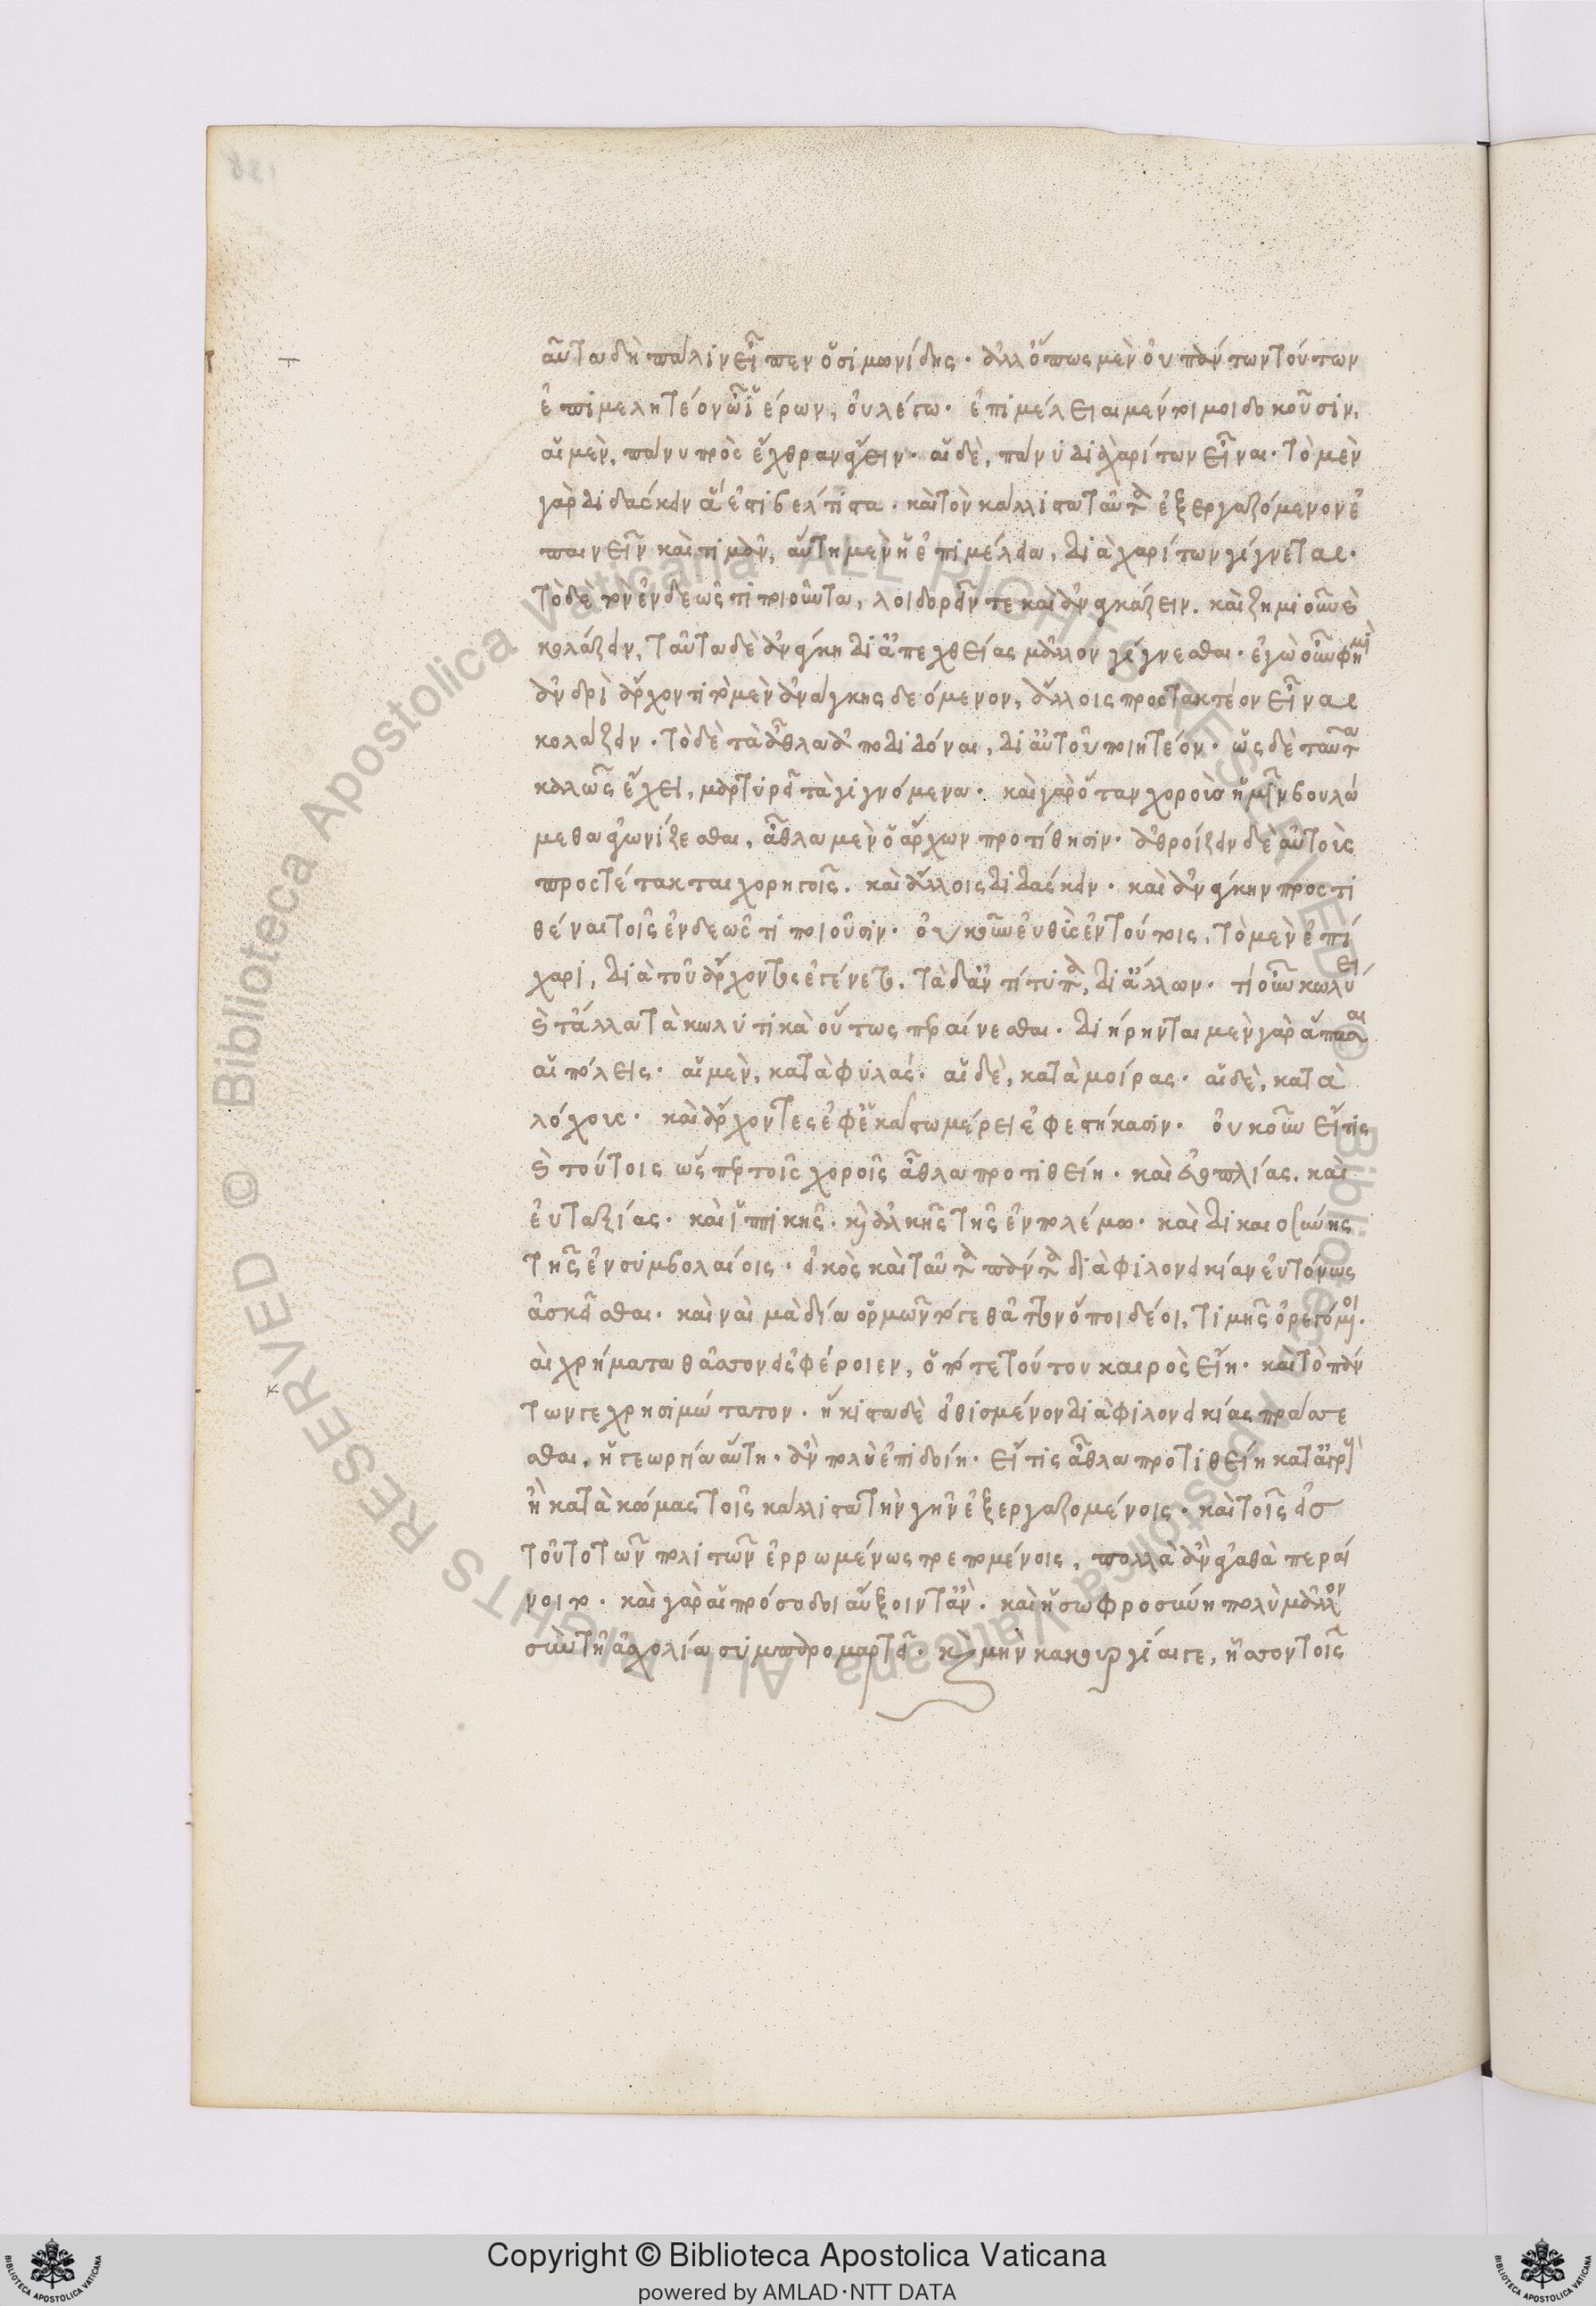 αῦτα δὴ πάλιν εἶπεν ὁ σιμωνίδης· ἀλλ' ὅπως μὲν οὐ πάντων τούτων
ἐπιμελητέον ὦ ἱέρων, οὐ λέγω· ἐπιμέλειαι μέντοι μοι δοκοῦσιν,
αἱ μὲν, πάνυ πρὸς ἔχθραν ἄγειν· αἱ δὲ, πάνυ διὰ χαρίτων εἶναι· τὸ μὲν
γὰρ διδάσκειν ἅ ἐστι βέλτιστα· καὶ τὸν κάλλιστα ταῦτα ἐξεργαζόμενον ἐ
παινεῖν καὶ τιμᾶν, αὕτη μὲν ἡ ἐπιμέλεια, διὰ χαρίτων γίγνεται·
τὸ δὲ τὸν ἐνδεῶς τι ποιοῦντα, λοιδορεῖν τε καὶ ἀναγκάζειν. καὶ ζημιοῦν καὶ
κολάζειν, ταῦτα δὲ ἀνάγκη δι' ἀπεχθείας μᾶλλον γίγνεσθαι· ἐγὼ οὖν φημὶ
ἀνδρὶ ἄρχοντι τὸ μὲν ἀνάγκης δεόμενον, ἄλλοις προστακτέον εἶναι
κολάζειν· τὸ δὲ τὰ ἆθλα ἀποδιδόναι, δι' αὐτοῦ ποιητέον· ὡς δὲ ταῦτα
καλῶς ἔχει, μαρτυρεῖ τὰ γιγνόμενα· καὶ γὰρ ὅταν χοροὺς ἡμῖν βουλώ
μεθα ἀγωνίζεσθαι, ἆθλα μὲν ὁ ἄρχων προτίθησιν· ἀθροίζειν δὲ αὐτοὺς
προστέτακται χορηγοῖς. καὶ ἄλλοις διδάσκειν· καὶ ἀνάγκην προστι
θέναι τοῖς ἐνδεῶς τι ποιοῦσιν· οὐκοῦν εὐθὺς ἐν τούτοις, τὸ μὲν ἐπί
χαρι, διὰ τοῦ ἄρχοντος ἐγένετο. τὰ δ' ἀντίτυπα, δι' ἄλλων· τί οὖν κωλύει
καὶ τἆλλα τὰ πολιτικὰ οὕτως περαίνεσθαι· διῄρηνται μὲν γὰρ ἅπασαι
αἱ πόλεις· αἱ μὲν, κατὰ φυλάς· αἱ δὲ, κατὰ μοίρας· αἱ δὲ, κατὰ
λόχους· καὶ ἄρχοντες ἐφ' ἑκάστῳ μέρει ἐφεστήκασιν· οὐκοῦν εἴ τις
καὶ τούτοις ὥσπερ τοῖς χοροῖς ἆθλα προτιθείη· καὶ εὐοπλίας. καὶ
εὐταξίας· καὶ ἱππικῆς· καὶ ἀλκῆς τῆς ἐν πολέμῳ· καὶ δικαιοσύνης
τῆς ἐν συμβολαίοις· εἰκὸς καὶ ταῦτα πάντα διὰ φιλονεικίαν εὐτόνως
ἀσκεῖσθαι· καὶ ναὶ μὰ δία ὁρμῶντό γε θᾶττον ὅποι δέοι, τιμῆς ὀρεγόμενοι·
αὶ χρήματα θᾶσσον εἰσφέροιεν, ὁπότε τούτου καιρὸς εἴη· καὶ τὸ πάν
των γε χρησιμώτατον· ἥκιστα δὲ εἰθισμένον διὰ φιλονεικίας πράσσε
σθαι, ἡ γεωργία αὕτη· ἂν πολὺ ἐπιδοίη· εἴ τις ἆθλα προτιθείη κατ' ἀγροὺς
ἢ κατὰ κώμας τοῖς κάλλιστα τὴν γῆν ἐξεργαζομένοις· καὶ τοῖς εἰσ
τοῦτο τῶν πολιτῶν ἐρρωμένως τρεπομένοις, πολλὰ ἂν ἀγαθὰ περαί
νοιτο· καὶ γὰρ αἱ πρόσοδοι αὔξοιντ' ἄν· καὶ ἡ σωφροσύνη πολὺ μᾶλλον
σὺν τῇ ἀσχολίᾳ συμπαρομαρτεῖ· καὶ μὴν κακουργίαι γε, ἧσσον τοῖς
Biblioteca Apostolica Vaticana ALL RIGHTS RESERVED ©
Copyright © Biblioteca Apostolica Vaticana
powered by AMLAD·NTT DATA